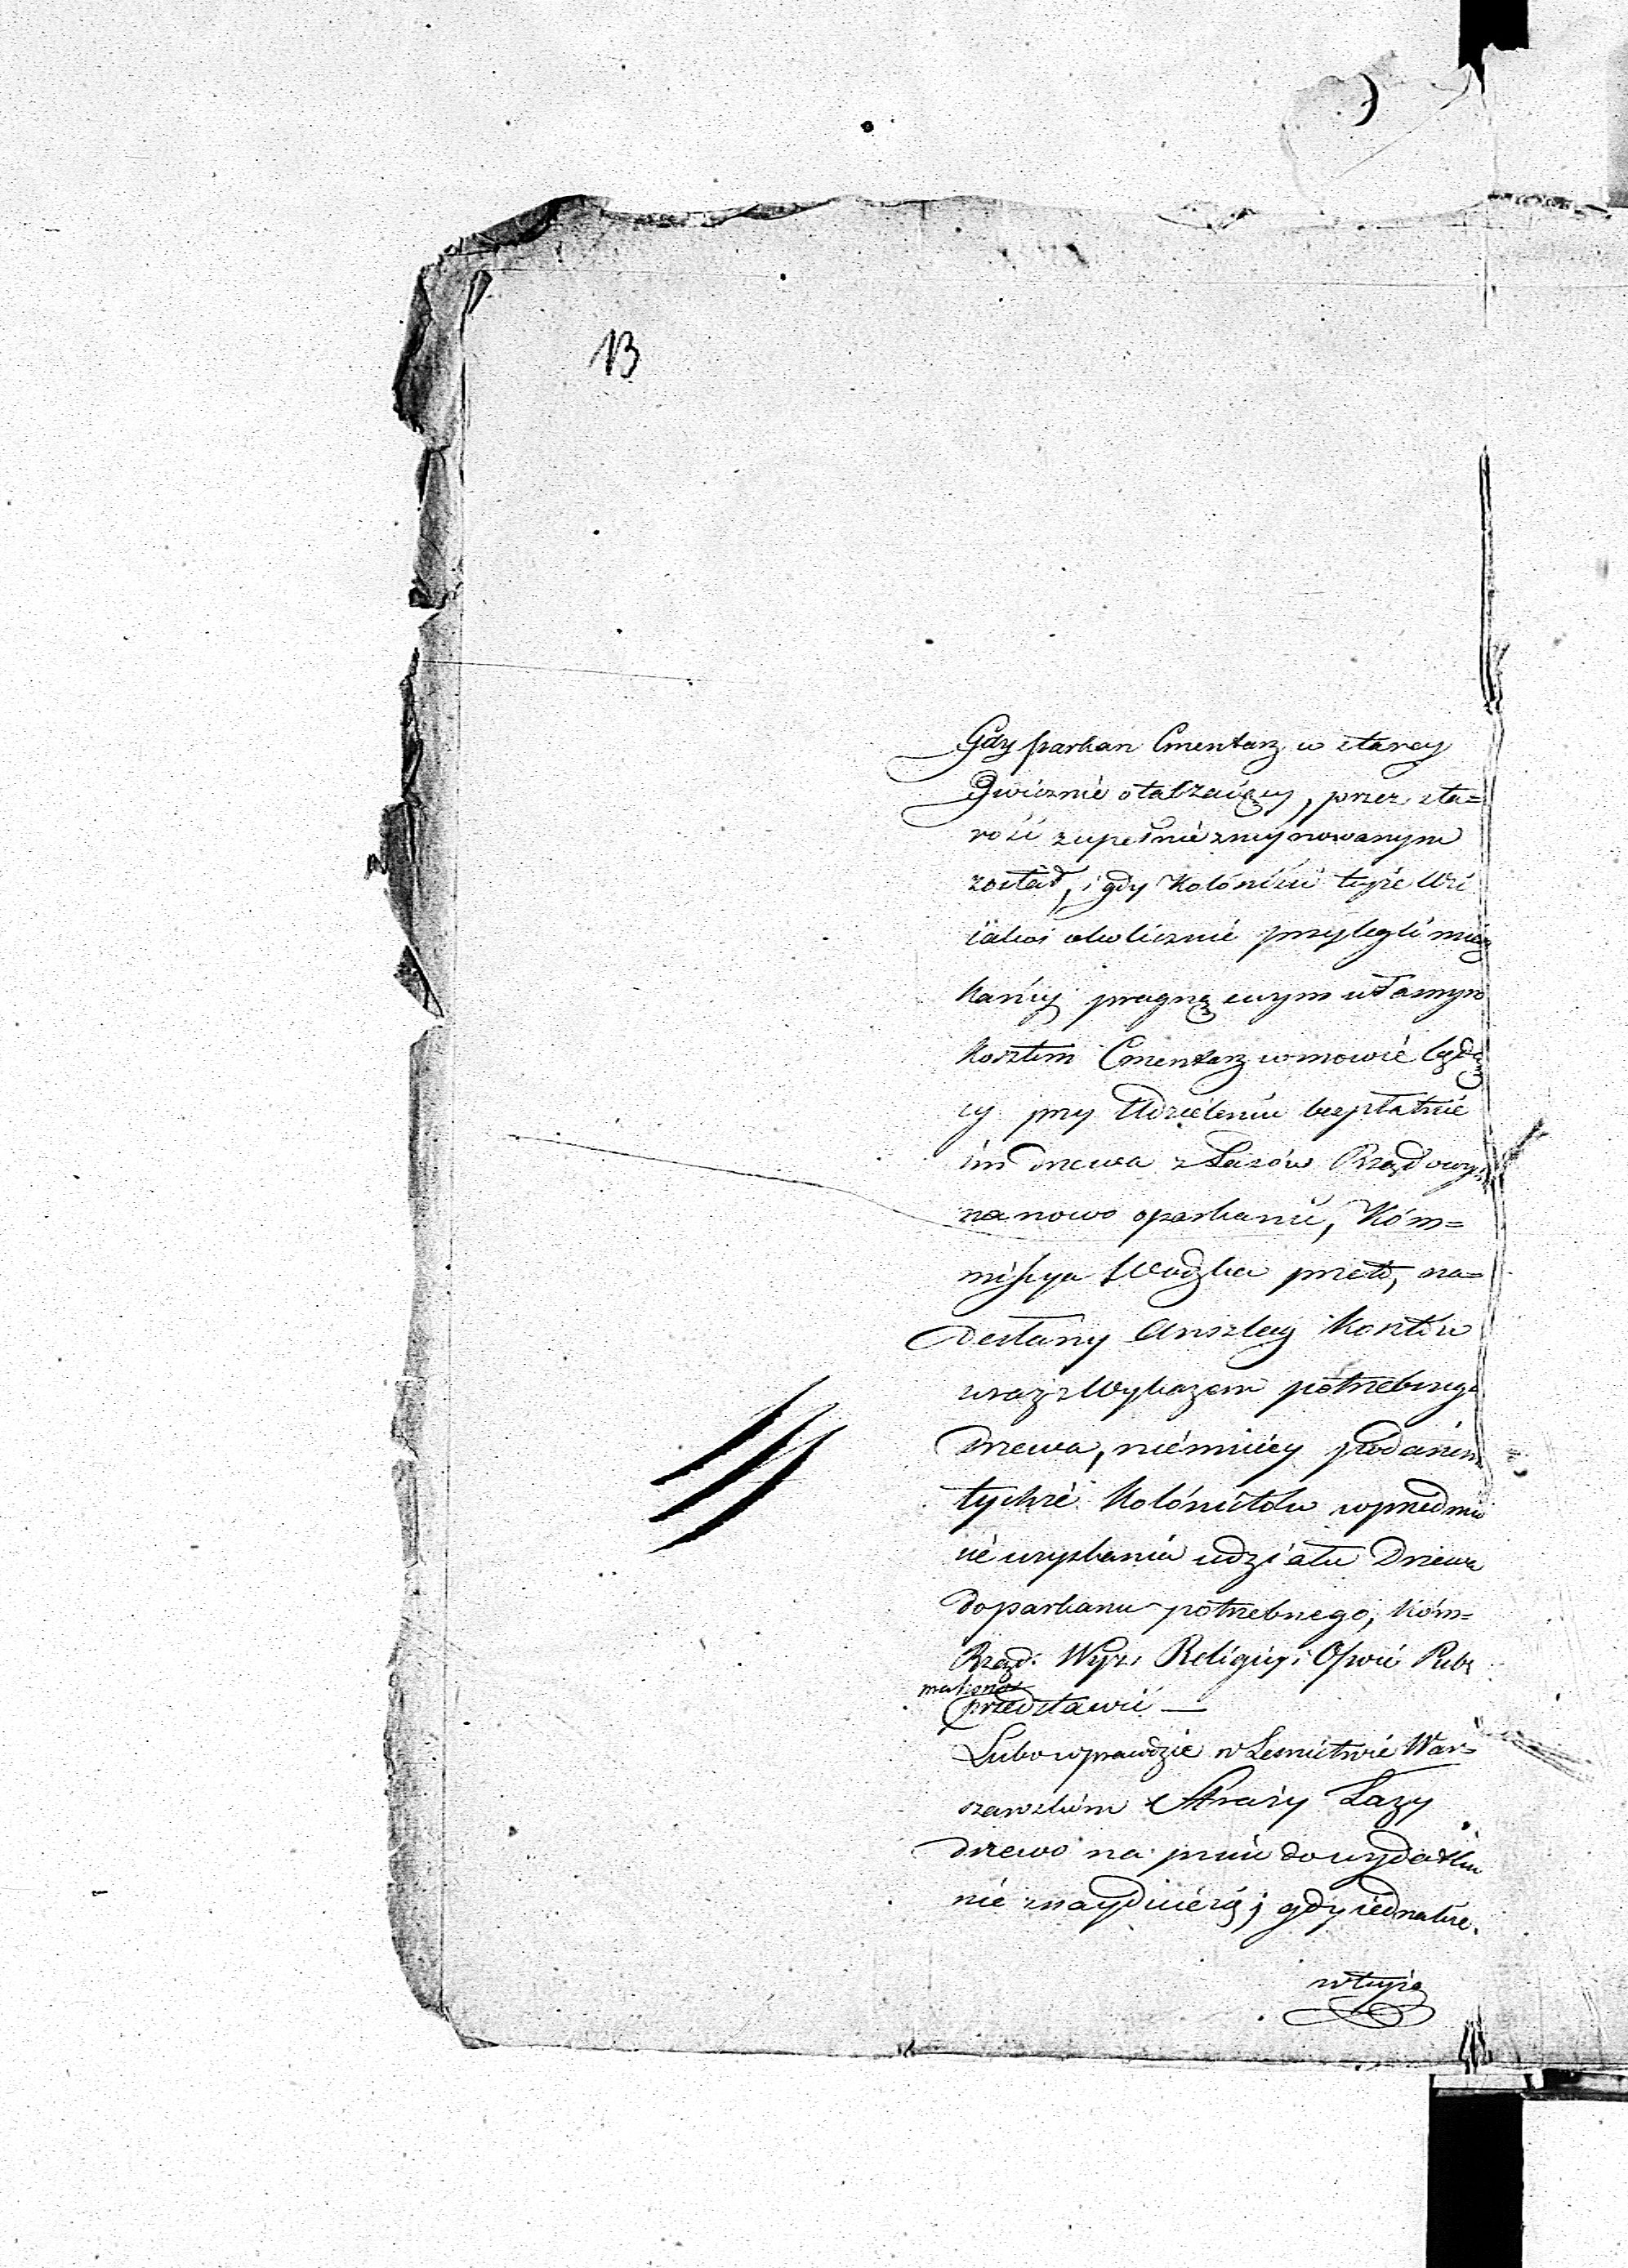 13
Gdy parkan Cmentarz w starey
Iwicznie otaczaiący, przez sta=
rość zupełnie zruynowanym
został, i gdy Kolóniści teyże Wsi
iakoi okolicznie przylegli miesz
kańcy pragną swym własnym
kosztem Cmentarz w mowie będą
cy przy Udzieleniu bezpłatnie
im drzewa z Lasów Rządowych
na nowo oparkanić, Kóm=
missya Wwdzka przeto, na=
desłany Anszlag Kosztów
wraz z Wykazem potrzebnego
Drzewa, niemniéy podanie
tychże Kolónistów w przedmio
cie uzyskania udziału Drzewa
do parkanu potrzebnego, Kóm=
Rząd: Wyz: Religiy: i Oświé Pub:
ma honor
przedstawić —
Lubo wprawdzie w Leśnictwie War=
szawskim Straży Łazy
drzewo na pniu do wydatku
nie znayduie się; gdy iednakże
w teyże